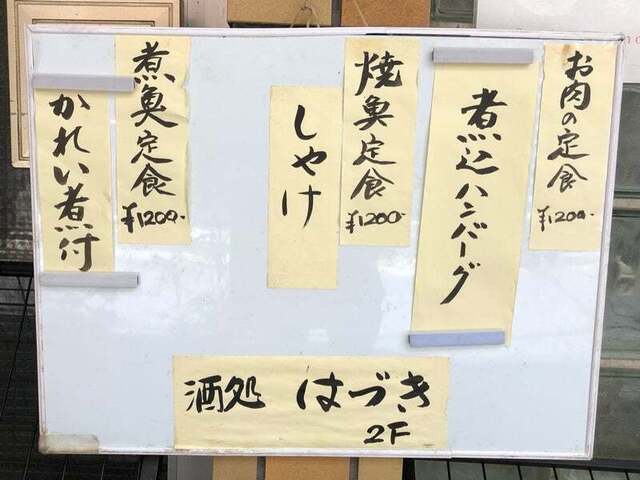 お肉の定食
¥1200-
煮込ハンバーグ
焼魚定食
¥1200-
しゃけ
煮魚定食
¥1200-
かれい煮付
酒処 はづき
2F